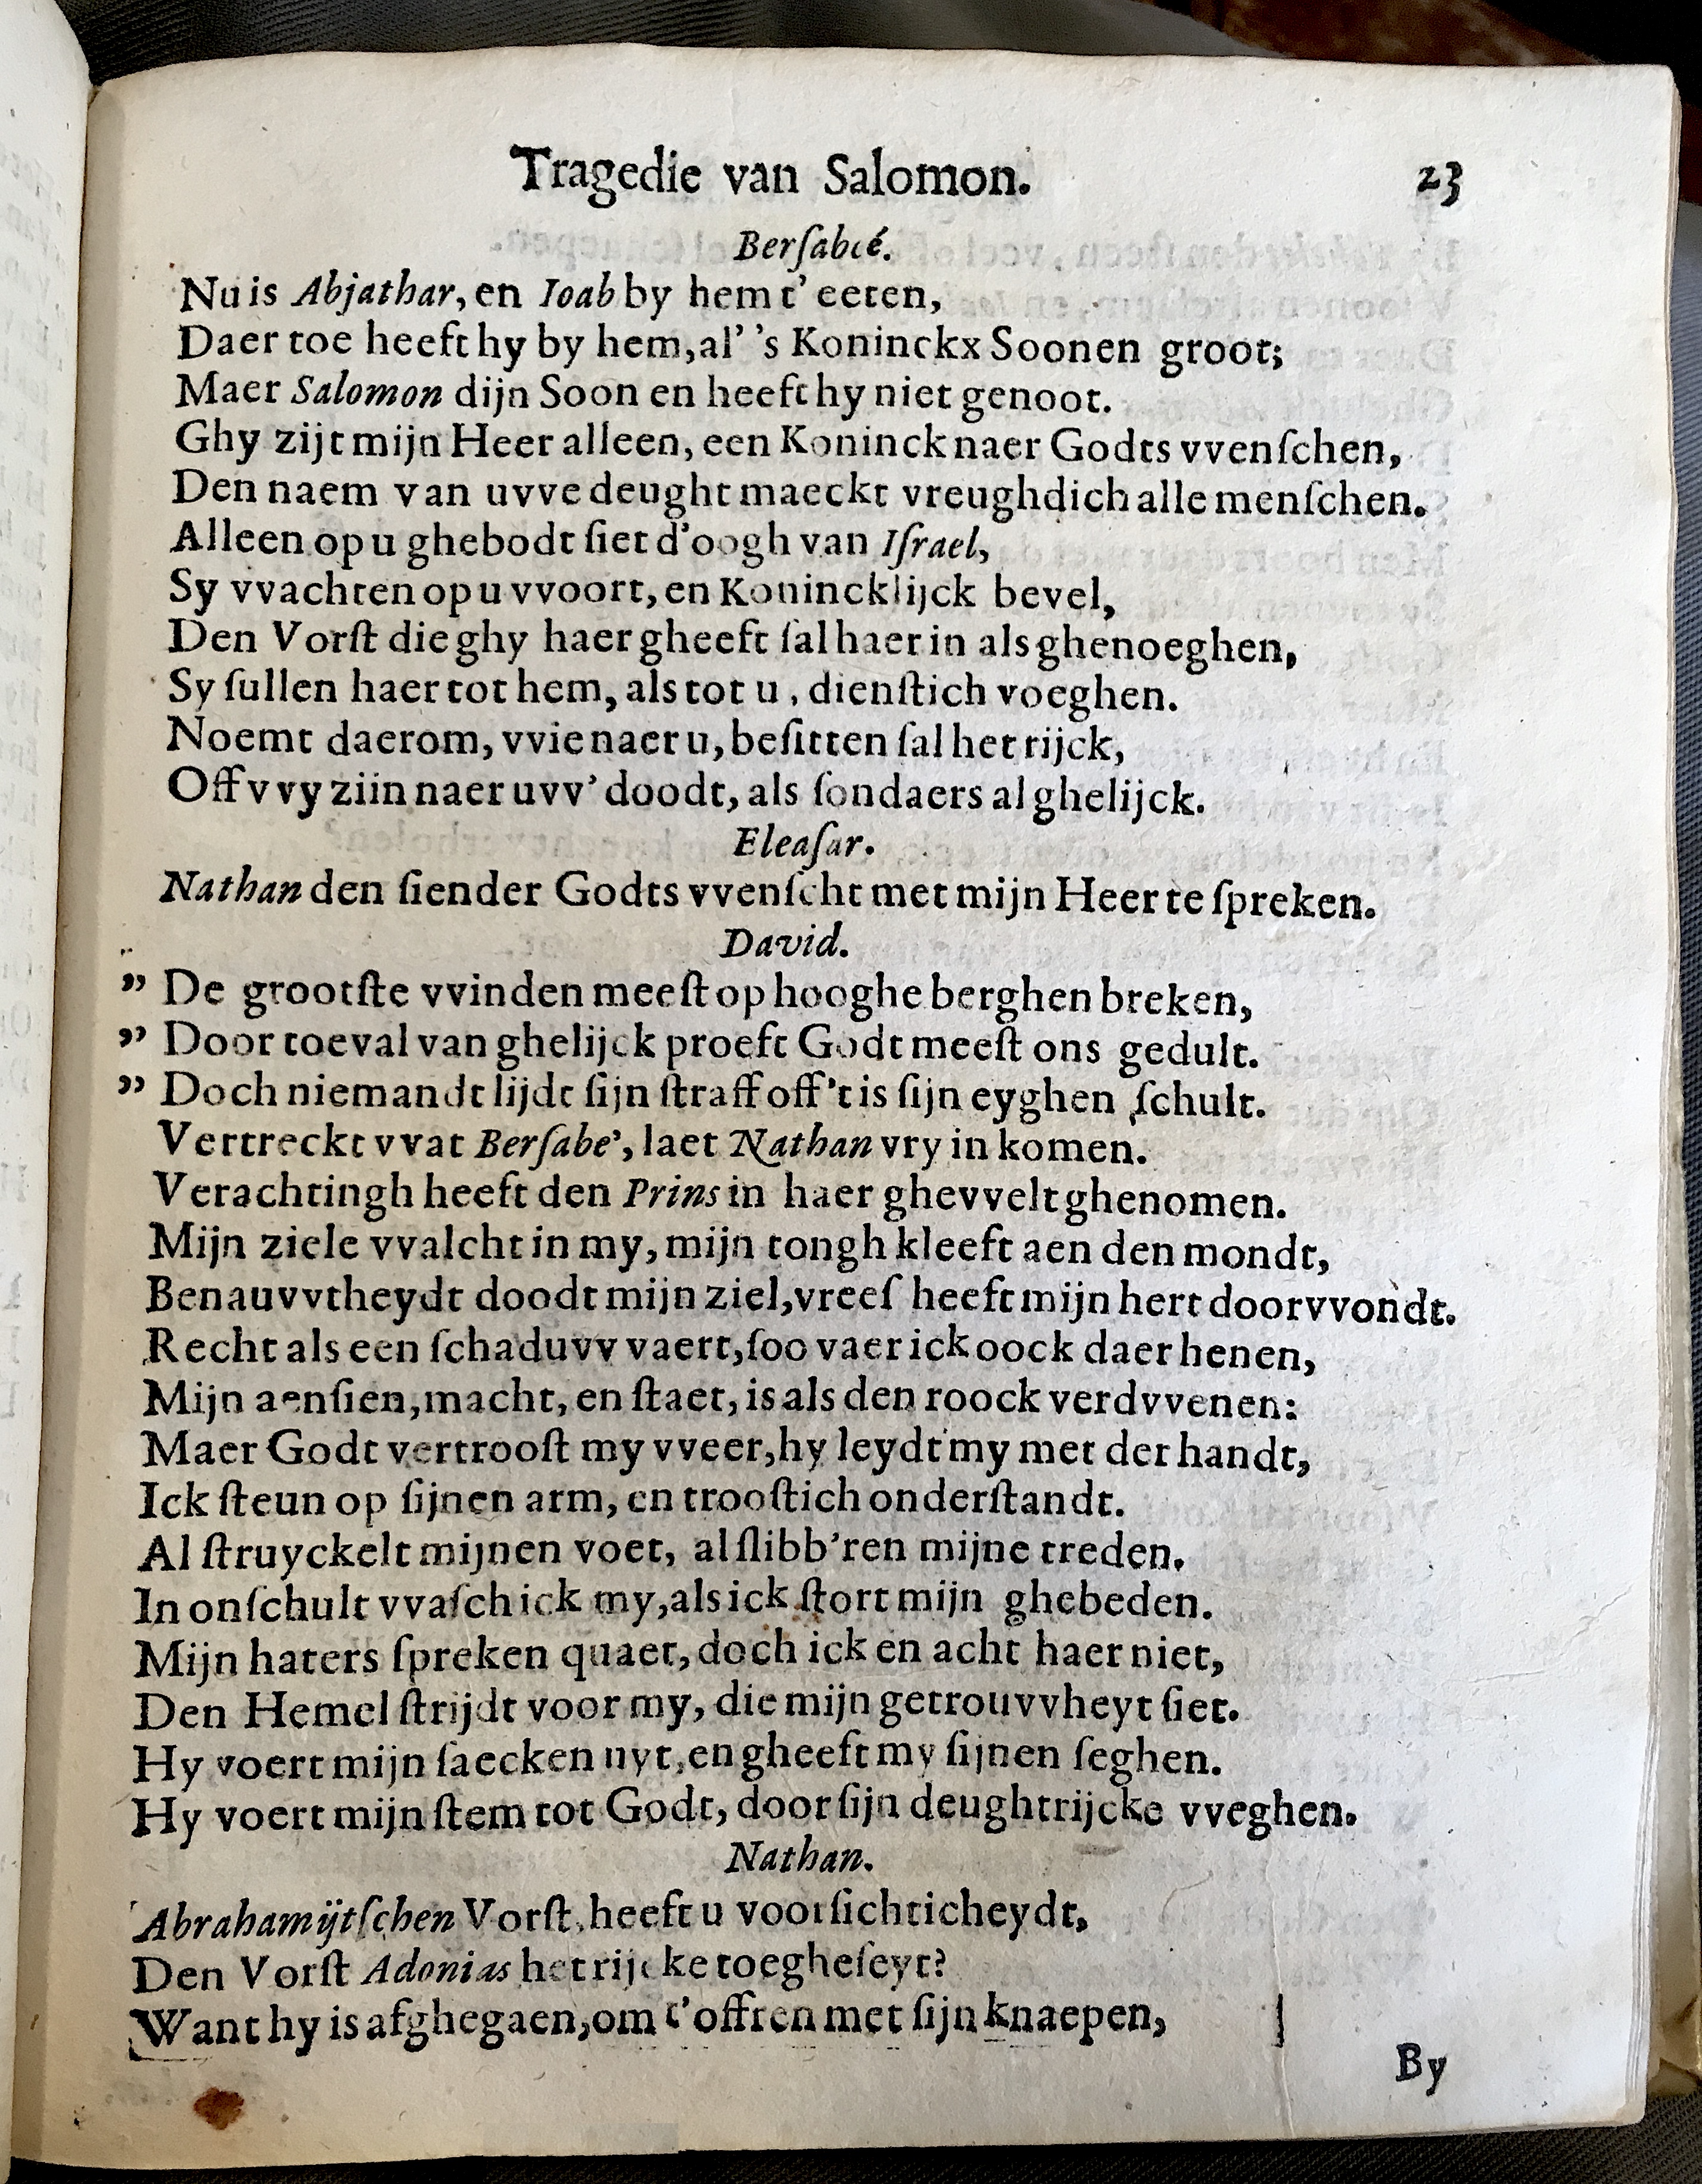 Tragedie van Salomon. 23
Berſabeé.
Nu is Abjathar, en Ioab by hem t' eeten,
Daer toe heeft hy by hem, al' 's Koninckx Soonen groot;
Maer Salomon dijn Soon en heeft hy niet genoot.
Ghy zijt mijn Heer alleen, een Koninck naer Godts vvenſchen,
Den naem van uvve deught maeckt vreughdich alle menſchen.
Alleen op u ghebodt ſiet d'oogh van Iſrael,
Sy vvachten op u vvoort, en Konincklijck bevel,
Den Vorſt die ghy haer gheeft ſal haer in als ghenoeghen,
Sy ſullen haer tot hem, als tot u, dienſtich voeghen.
Noemt daerom, vvie naer u, beſitten ſal het rijck,
Off vvy ziin naer uvv' doodt, als ſondaers al ghelijck.
Eleaſar.
Nathan den ſiender Godts vvenſcht met mijn Heer te ſpreken.
David.
" De grootſte vvinden meeſt op hooghe berghen breken,
" Door toeval van ghelijck proeft Godt meeſt ons gedult.
" Doch niemandt lijdt ſijn ſtraff off't is ſijn eyghen ſchult.
Vertreckt vvat Berſabe', laet Nathan vry in komen.
Verachtingh heeft den Prins in haer ghevvelt ghenomen.
Mijn ziele vvalcht in my, mijn tongh kleeft aen den mondt,
Benauvvtheydt doodt mijn ziel, vreeſ heeft mijn hert doorvvondt.
Recht als een ſchaduvv vaert, ſoo vaer ick oock daer henen,
Mijn aenſien, macht, en ſtaet, is als den roock verdvvenen:
Maer Godt vertrooſt my vveer, hy leydt my met der handt,
Ick ſteun op ſijnen arm, en trooſtich onderſtandt.
Al ſtruyckelt mijnen voet, al ſlibb'ren mijne treden,
In onſchult vvaſch ick my, als ick ſtort mijn ghebeden.
Mijn haters ſpreken quaet, doch ick en acht haer niet,
Den Hemel ſtrijdt voor my, die mijn getrouvvheyt ſiet.
Hy voert mijn ſaecken uyt, en gheeft my ſijnen ſeghen.
Hy voert mijn ſtem tot Godt, door ſijn deughtrijcke vveghen.
Nathan.
Abrahamijtſchen Vorſt, heeft u voorſichticheydt,
Den Vorſt Adonias het rijcke toegheſeyt?
Want hy is afghegaen, om t'offren met ſijn knaepen,
By